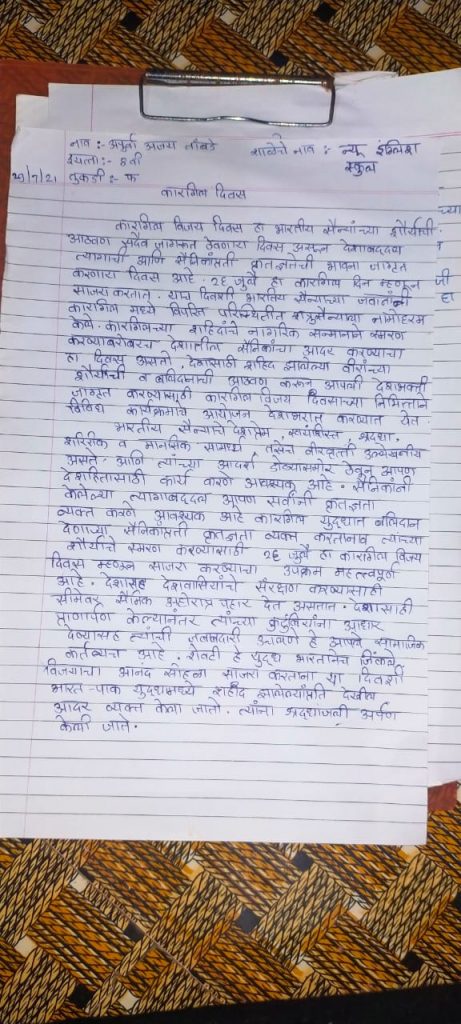 नाव :- अपूर्वा अजय तांबडे शाळेचे नाव :- न्यू इंग्लिश
इयत्ता :- 8 वी स्कुल
20/7/21 तुकडी :- फ
कारगिल दिवस
कारगिल विजय दिवस हा भारतीय सैन्यांच्या शौर्याची
आठवण सदैव जागृत ठेवणारा दिवस असून देशाबद्दल
त्यागाची आणि सैनिकांप्रती कृतज्ञतेची भावना जागृत
करणारा दिवस आहे. २६ जुलै हा कारगिल दिन म्हणून
साजरा करतात. याच दिवशी भारतीय सैन्याच्या जवानांनी
कारगिल मध्ये विपरित परिस्थितीत शत्रुसैन्याचा नामोहरम
केले. कारगिलच्या शहिदांचे नागरिक सन्मानाने स्मरण
करण्याबरोबरच देशातील सैनिकांचा आदर करण्याचा
हा दिवस असतो. देशासाठी शहिद झालेल्या वीरांच्या
शौर्याची व बलिदानाची आठवण करून आपली देशभक्ती
जागृत करण्यासाठी कारगिल विजय दिवसाच्या निमित्ताने
विविध कार्यक्रमाचे आयोजन देशभरात करण्यात येते.
भारतीय सैन्याचे देशप्रेम, स्वयंशिस्त, श्रध्दा,
शारिरीक व मानसिक सामर्थ्य, तसेच वीरवृत्ती उल्लेखनीय
असते. आणि त्यांच्या आदर्श डोळ्यासमोर ठेवून आपण
देशहितासाठी कार्य करणे आवश्यक आहे. सैनिकांनी
केलेल्या त्यागाबद्दल आपण सर्वांनी कृतज्ञता
व्यक्त करणे आवश्यक आहे कारगिल युद्धात बलिदान
देणाऱ्या सैनिकांप्रती कृतज्ञता व्यक्त करतानाच त्यांच्या
शौर्याचे स्मरण करण्यासाठी २६ जुलै हा कारगिल विजय
दिवस म्हणून साजरा करण्याचा उपक्रम महत्त्वपूर्ण
आहे. देशासह देशवासियांचे संरक्षण करण्यासाठी
सीमेवर सैनिक अहोरात्र पहारा देत असतात. देशासाठी
प्राणार्पण केल्यानंतर त्यांच्या कुटुंबियांना आधार
देण्यासह त्यांची जबाबदारी आपणे हे आपले सामाजिक
कर्तव्यच आहे. शेवटी हे युद्ध भारतानेच जिंकले
विजयाचा आनंद सोहळा साजरा करताना या दिवशी
भारत-पाक युद्धामध्ये शहीद झालेल्यांप्रति देखील
आदर व्यक्त केला जातो. त्यांना श्रद्धांजली अर्पण
केली जाते.